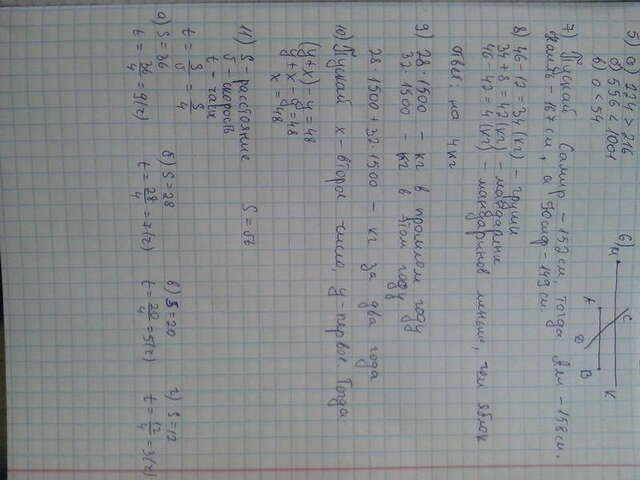 5) а) 224 > 216
б) 556 < 1001
в) 0 < 54
6)
М
А
С
D
В
К
7) Пускай Самир – 152 см, тогда
– 167 см, а – 149 см.
– 158 см.
8) 46-12=34 (кг) – груши
34+8=42 (кг) – мандарины
46-42=4 (кг) – мандаринов меньше, чем яблок
ответ: на 4 кг
9) 28·1500 – кг в прошлом году
32·1500 – кг в этом году
28·1500+32·1500 – кг за два года
10) Пускай x – второе число, y – первое. Тогда
(y+x)-y=48
y+x-y=48
x=48
11) S – расстояние
υ – скорость
t – часы
S=υt
t = S/υ = S/4
а) S=36
t = 36/4 = 9(г)
б) S=28
t = 28/4 = 7(г)
в) S=20
t = 20/4 = 5(г)
г) S=12
t = 12/4 = 3(г)